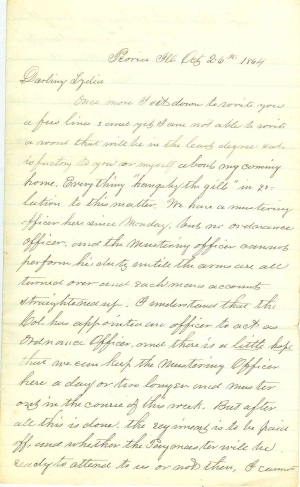 Peoria Ills Oct 26th 1864
Darling Lydia
Once more I sit down to write you
a few lines and yet I am not able to write
a word that will be in the least degree satis
factory to you or myself about my coming
home. Everything "hangs by the gills" in re-
lation to this matter. We have a mustering
officer here since Monday, but no ordnance
officer, and the Mustering officer cannot
perform his duty untill the arms are all
turned over and each mans accounts
straightened up. I understand that the
Col has appointed an officer to act as
Ordnance Officer, and there is a little hope
that we can keep the Mustering Officer
here a day or two longer and muster
out in the course of this week. But after
all this is done, the regiment is to be paid
off, and whether the Paymaster will be
ready to attend to us or not then, I cannot